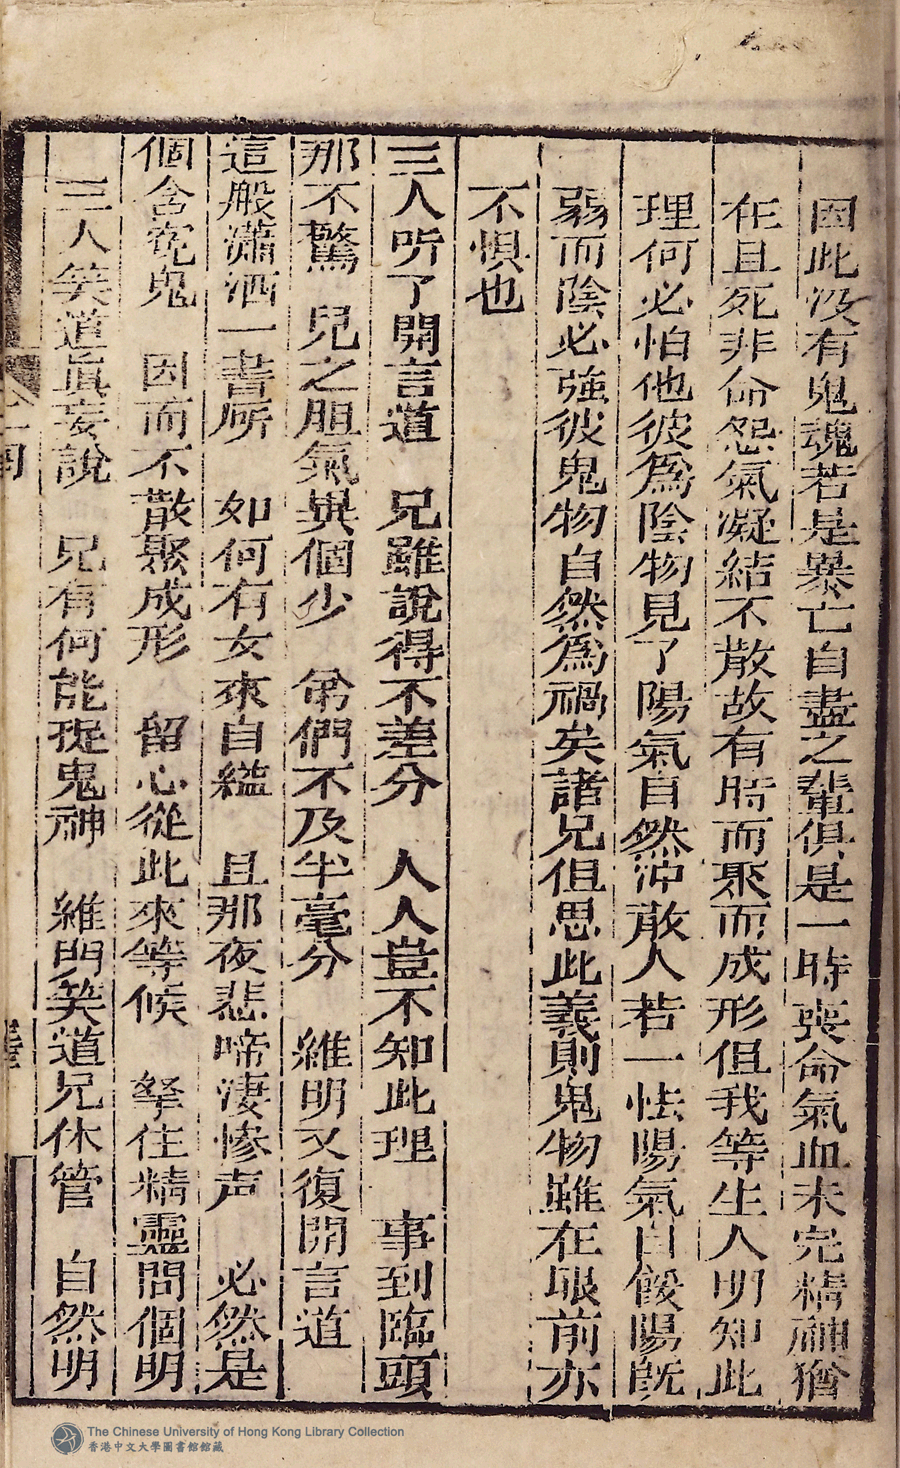 因此没有鬼魂若是暴亡自盡之輩俱是一時喪命氣血未完精神猶
在且死非命怨氣凝結不散故有時而聚而成形但我等生人明知此
理何必怕他彼爲陰物見了陽氣自然沖散人若一怯陽氣自餒陽旣
弱而陰必強彼鬼物自然爲禍矣諸兄但思此義則鬼物雖在眼前亦
不惧也
三人听了開言道　兄雖說得不差分　人人豈不知此理　事到臨頭
那不驚　兄之胆氣異個少　弟們不及半毫分　維明又復開言道
這般瀟洒一書所　如何有女來自縊　且那夜悲啼淒惨声　必然是
個含寃鬼　因而不散聚成形　留心從此來等候　拏住精靈問個明
三人笑道眞妄說　兄有何能捉鬼神　維明笑道兄休管　自然明
The Chinese University of Hong Kong Library Collection
香港中文大學圖書館館藏